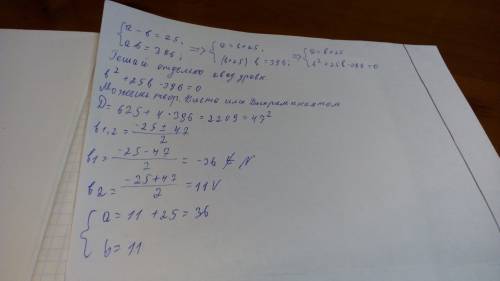 {a - b = 25; ab = 396; => {a = b+25 (b+25) b = 396; => {a = b+25 b² + 25b - 396 = 0
Решай отдельно квадр. ур.
b² + 25b - 396 = 0
Можешь теор. Виета или Дискриминантом
D = 625 + 4 · 396 = 2209 = 47²
b1,2 = (-25 ± 47)/2
b1 = (-25 - 47)/2 = -36 ∉ N
b2 = (-25 + 47)/2 = 11 V
{a = 11 + 25 = 36
b = 11